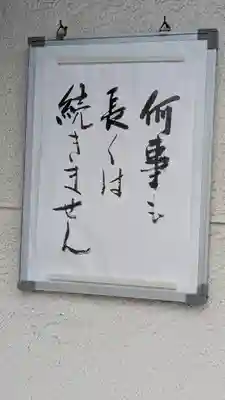 何事も
長くは
続きません